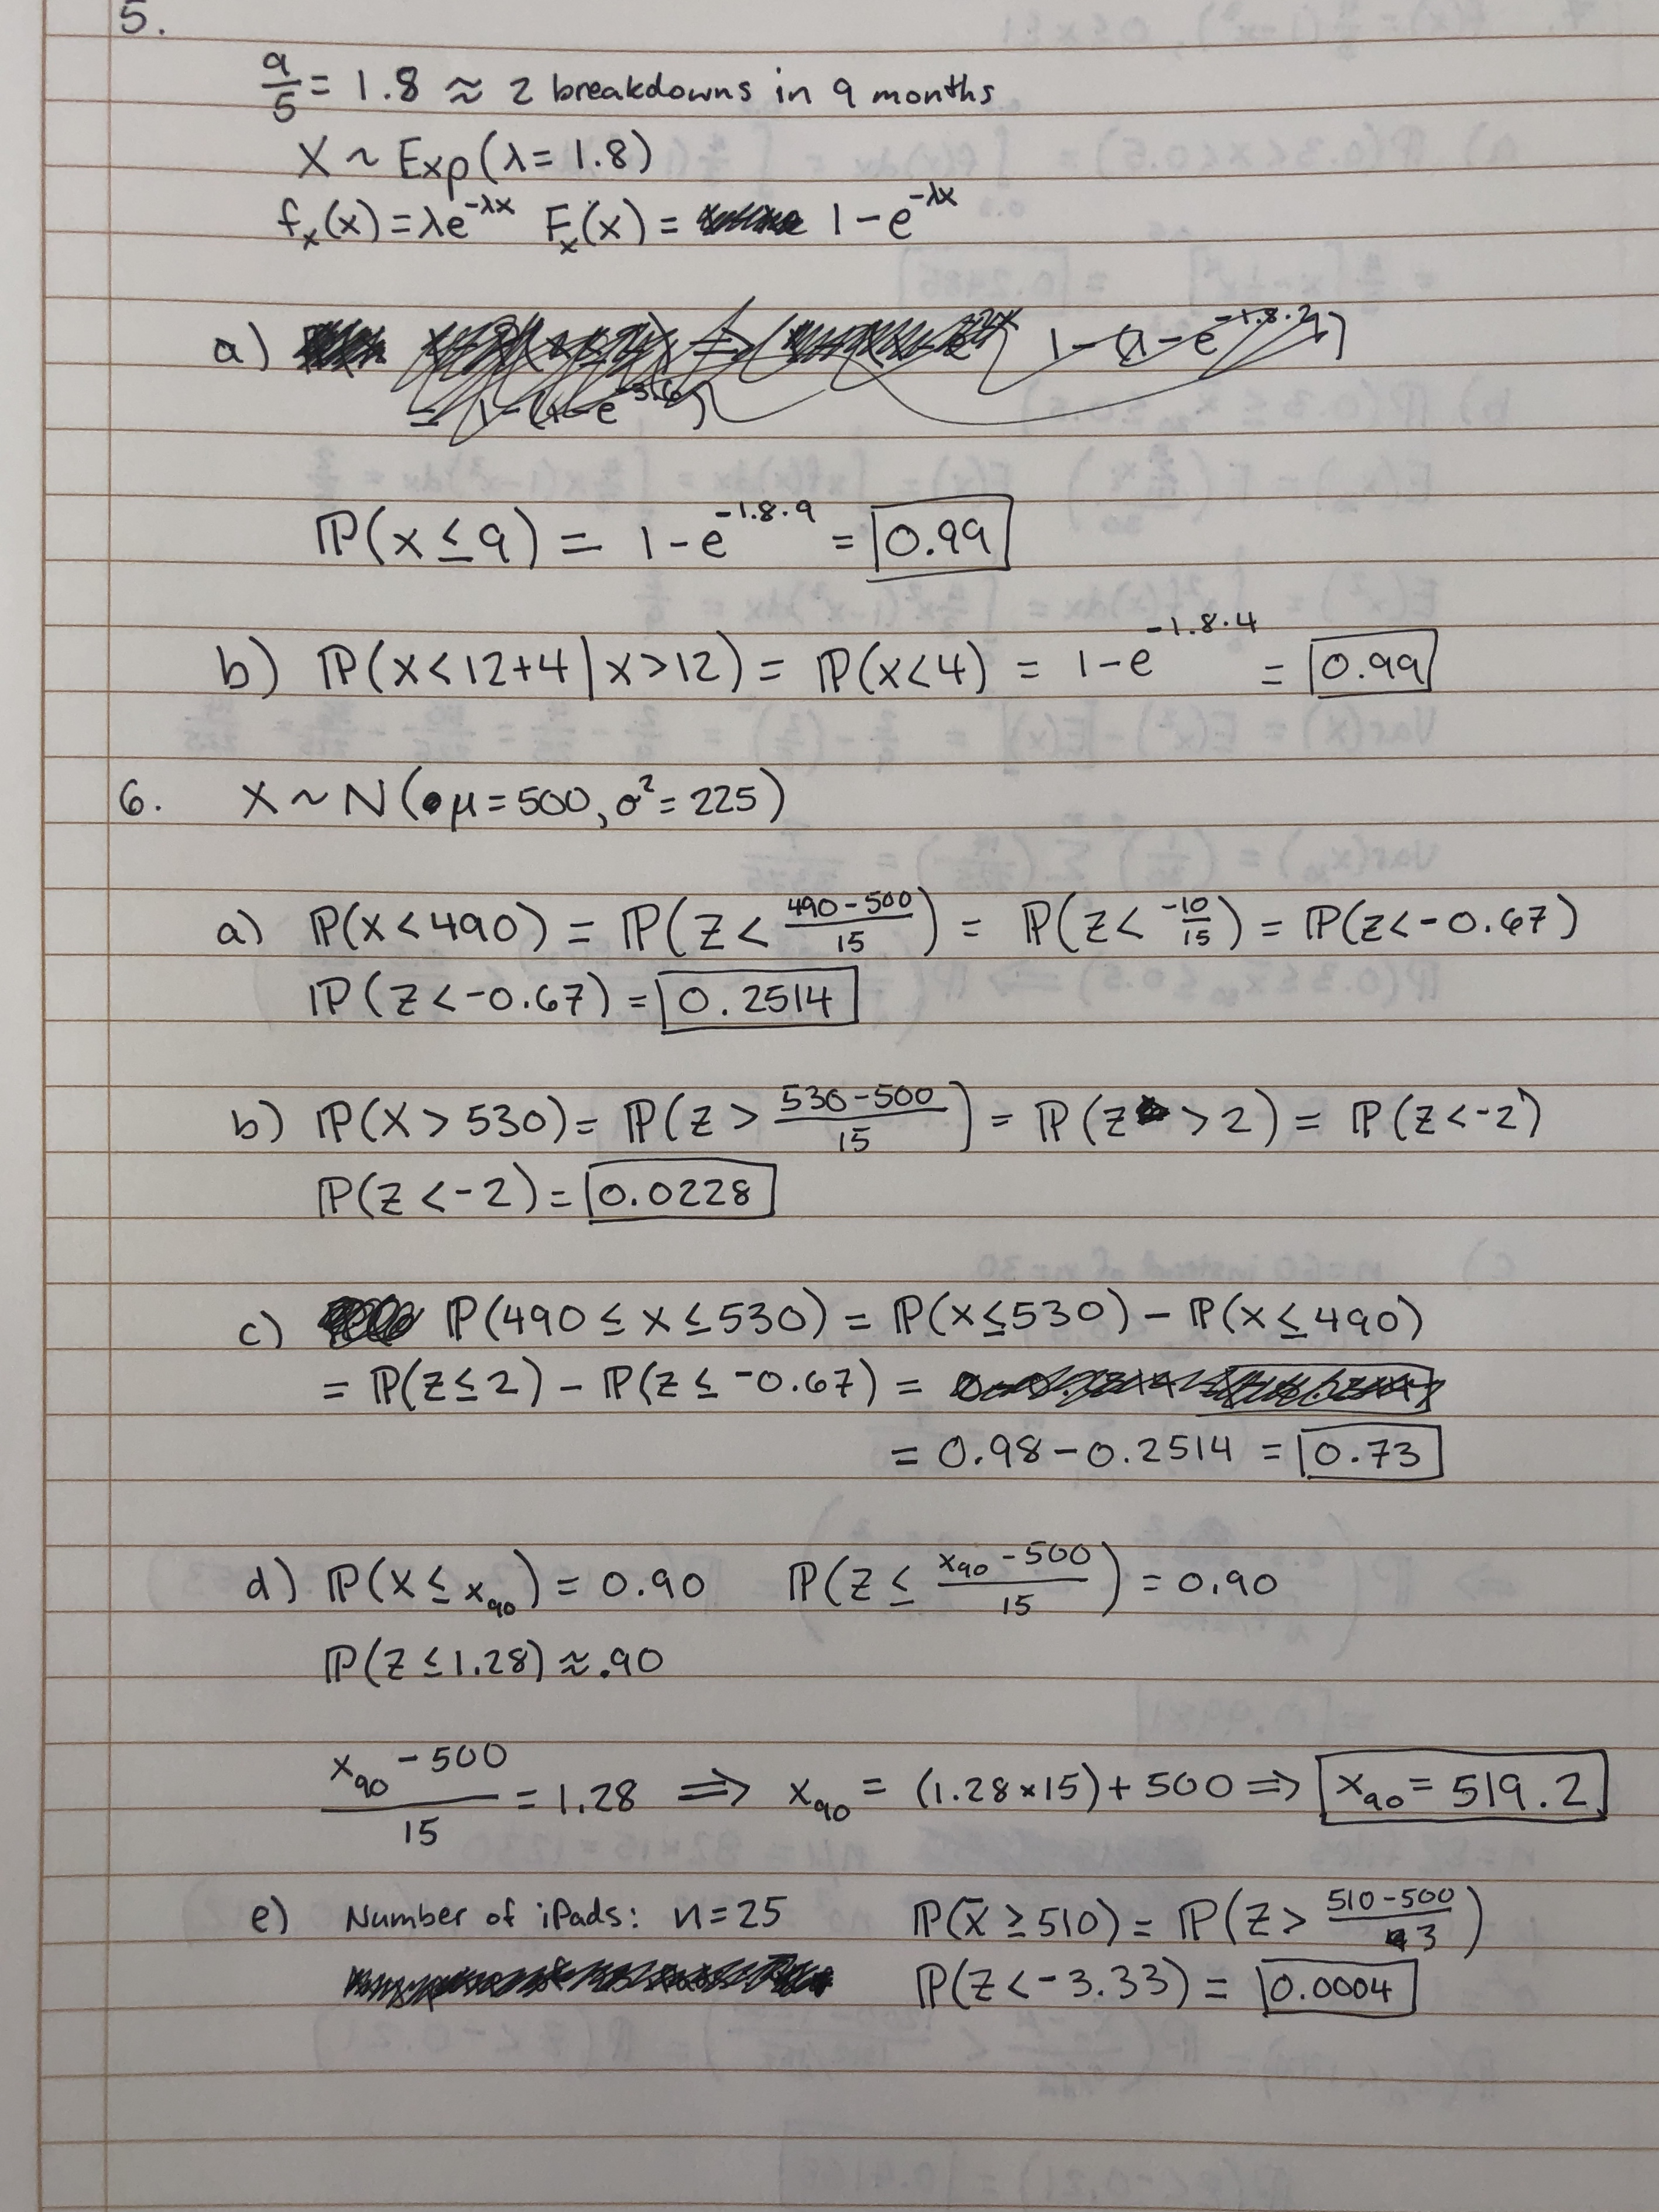 5.
9/5 = 1.8 ≈ 2 breakdowns in 9 months
X ~ Exp(λ = 1.8)
fₓ(x) = λe^(-λx) Fₓ(x) = 1 - e^(-λx)
a) 1 - (1 - e^(-1.8·2))
= 1 - (1 - e^(-3.6))
ℙ(x ≤ 9) = 1 - e^(-1.8·9) = 0.99
b) ℙ(x < 12+4 | x > 12) = ℙ(x < 4) = 1 - e^(-1.8·4) = 0.99
6. X ~ N(μ = 500, σ² = 225)
a) ℙ(x < 490) = ℙ(z < (490-500)/15) = ℙ(z < -10/15) = ℙ(z < -0.67)
ℙ(z < -0.67) = 0.2514
b) ℙ(X > 530) = ℙ(z > (530-500)/15) = ℙ(z > 2) = ℙ(z < -2)
ℙ(z < -2) = 0.0228
c) ℙ(490 ≤ x ≤ 530) = ℙ(x ≤ 530) - ℙ(x ≤ 490)
= ℙ(z ≤ 2) - ℙ(z ≤ -0.67) =
= 0.98 - 0.2514 = 0.73
d) ℙ(x ≤ x₉₀) = 0.90 ℙ(z ≤ (x₉₀ - 500)/15) = 0.90
ℙ(z ≤ 1.28) ≈ .90
(x₉₀ - 500)/15 = 1.28 ⟹ x₉₀ = (1.28 × 15) + 500 ⟹ x₉₀ = 519.2
e) Number of iPads: n = 25 ℙ(x̄ ≥ 510) = ℙ(z > (510-500)/3)
ℙ(z < -3.33) = 0.0004